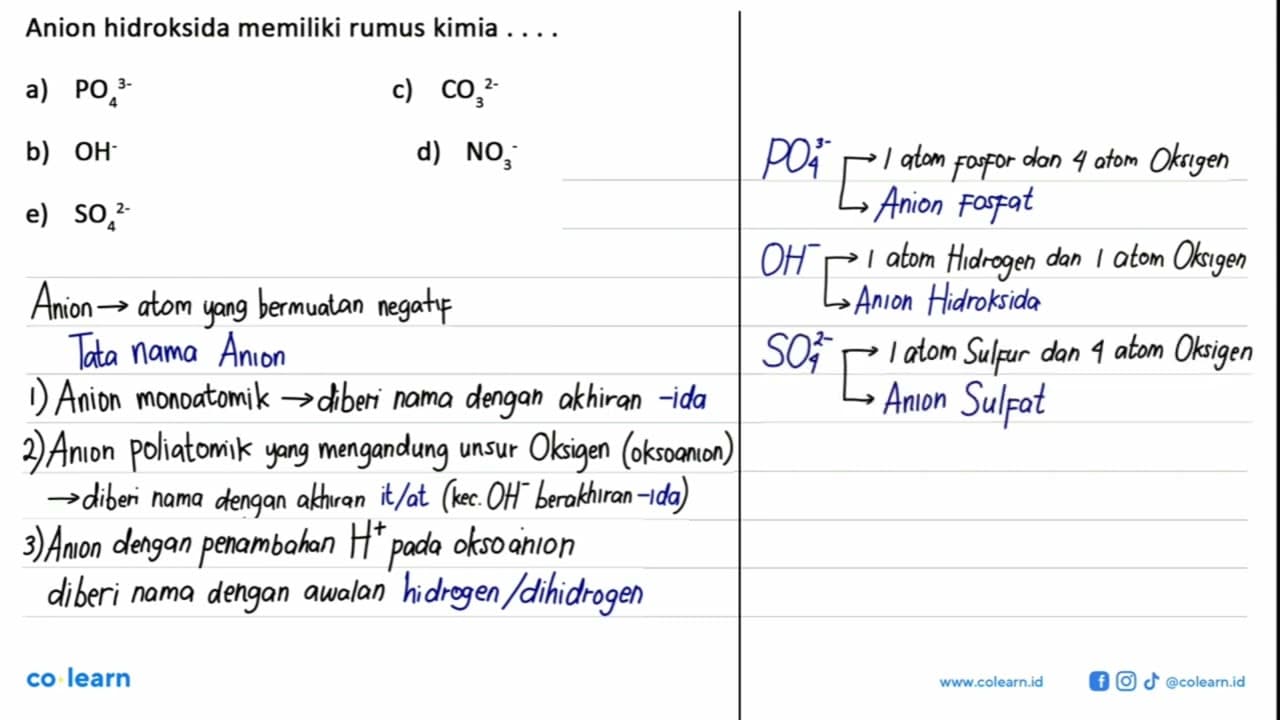 Anion hidroksida memiliki rumus kimia . . . .
a) PO₄³⁻
c) CO₃²⁻
b) OH⁻
d) NO₃⁻
e) SO₄²⁻
Anion → atom yang bermuatan negatif
Tata nama Anion
1) Anion monoatomik → diberi nama dengan akhiran -ida
2) Anion poliatomik yang mengandung unsur Oksigen (oksoanion)
→ diberi nama dengan akhiran it/at (kec. OH⁻ berakhiran -ida)
3) Anion dengan penambahan H⁺ pada oksoanion
diberi nama dengan awalan hidrogen/dihidrogen
PO₄³⁻ → 1 atom fosfor dan 4 atom Oksigen
→ Anion Fosfat
OH⁻ → 1 atom Hidrogen dan 1 atom Oksigen
→ Anion Hidroksida
SO₄²⁻ → 1 atom Sulfur dan 4 atom Oksigen
→ Anion Sulfat
co·learn
www.colearn.id @colearn.id